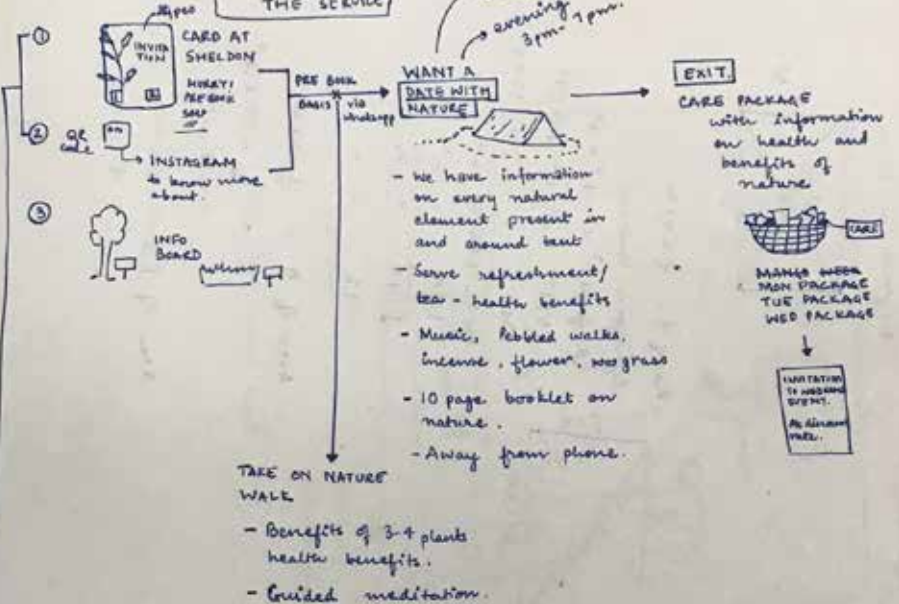 THE SERVICE
evening
3pm - 7pm.
①
INVITA
TION
CARD AT
SHELDON
HURRY!
PRE BOOK
②
QR
code
INSTAGRAM
to know more
about.
③
INFO
BOARD
PRE BOOK
BASIS via
whatsapp
WANT A
DATE WITH
NATURE
- We have information
on every natural
element present in
and around tent
- Serve refreshment/
tea - health benefits
- Music, Pebbled walks,
incense, flower, grass
- 10 page booklet on
nature.
- Away from phone.
TAKE ON NATURE
WALK
- Benefits of 3-4 plants
health benefits.
- Guided meditation.
EXIT.
CARE PACKAGE
with information
on health and
benefits of
nature
CARE
MON PACKAGE
TUE PACKAGE
WED PACKAGE
INVITATION
TO
EVENT.
At discount
rate.